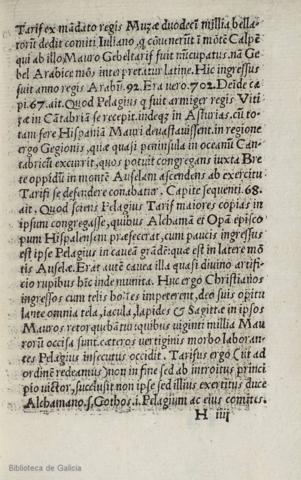 Tarif ex mādato regis Muzæ duodecē millia bella-
rorū dedit comiti Iuliano, q cōuenerūt ī mōtē Calpē
qui ab illo Mauro Gebeltarif fuit nūcupatus. nā Ge
bel Arabice mōs interpretatur latine. Hic ingressus
fuit anno regis Arabū. 92. Era vero. 702. Deīde ca
pi. 67. ait. Quod Pelagius q fuit armiger regis Viti-
zæ in Cātabriā se recepit. indeqз in Asturias. cū to-
tam fere Hispaniā Mauri deuastauissent. in regione
ergo Gegionis, quæ quasi peninsula in oceanū Can-
tabricū excurrit, quos potuit congregans iuxta Bre
te oppidū in montē Auselam ascendens ab exercitu
Tarifi se defendere conabatur. Capite sequenti. 68.
ait. Quod sciens Pelagius Tarif maiores copias in
ipsum congregasse, quibus Alchamā et Opā episco
pum Hispalensem præfecerat, cum paucis ingressus
est ipse Pelagius in caueā grādē: quæ est in latere mō
tis Auselæ. Erat autē cauea illa quasi diuino artifi-
cio rupibus hīc inde munita. Huc ergo Christianos
ingressos cum telis hostes impeterent, deo suis opitu
lante omnia tela, iacula, lapides & Sagittæ in ipsos
Mauros retorquebātur: quibus viginti millia Mau
rorū occisa sunt. cæteros vertiginis morbo laboran-
tes Pelagius insecutus occidit. Tarifus ergo (ut ad
ordinē redeamus) non in fine sed ab introitus princi
pio victor, succubuit non ipse sed illius exercitus duce
Alchamano. s. Gothos. i. Pelagium ac eius comites.
H iiij
Biblioteca de Galicia